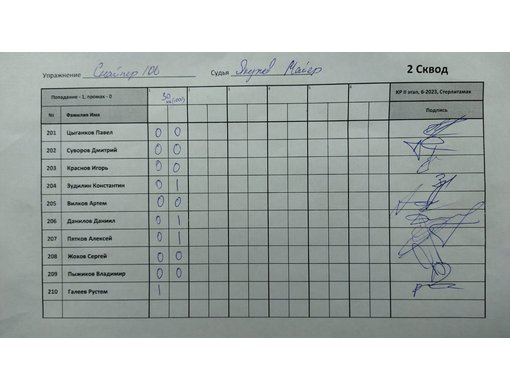 Упражнение Снайпер 100 Судья Якупов Майер 2 Сквод
Попадание - 1, промах - 0 1 30 2 3 4 5 6 КР II этап, 6-2023, Стерлитамак
№ Фамилия Имя Подпись
201 Цыганков Павел 0 0
202 Суворов Дмитрий 0 0
203 Краснов Игорь 0 0
204 Зудилин Константин 0 1
205 Вилков Артем 0 0
206 Данилов Даниил 0 1
207 Пятков Алексей 0 1
208 Жоков Сергей 0 0
209 Пыжиков Владимир 0 0
210 Галеев Рустем 1